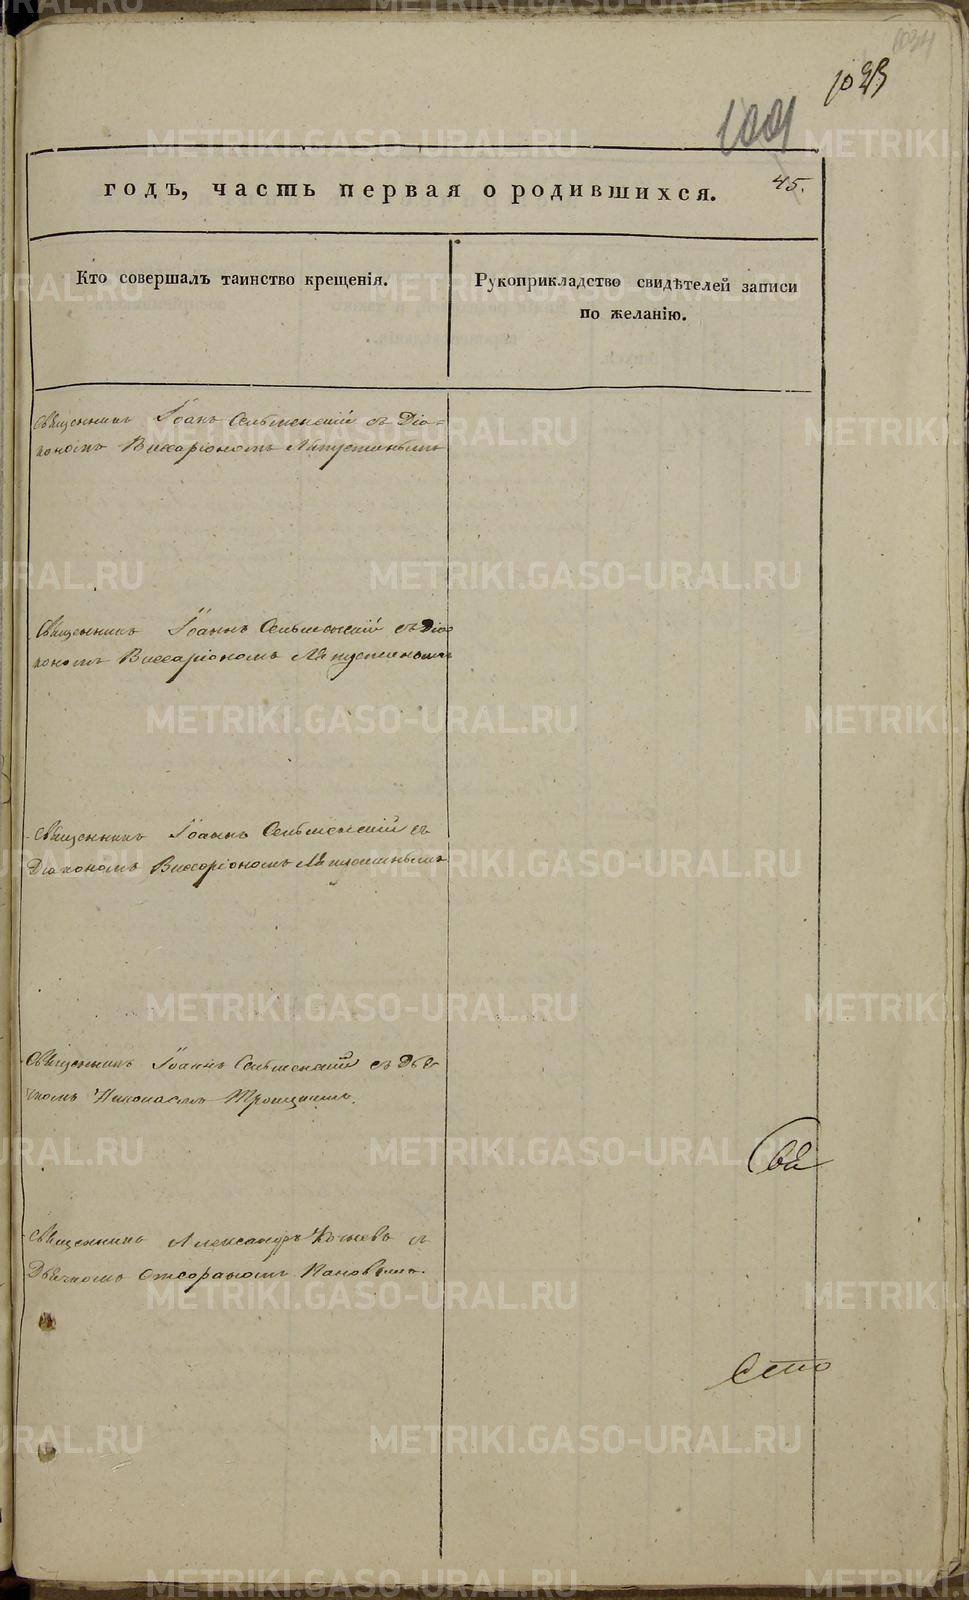 1023
1001
45.
годъ, часть первая о родившихся.
Кто совершалъ таинство крещенія.
Рукоприкладство свидѣтелей записи
по желанію.
Священникъ Іоанъ Сельменскій съ Діа=
кономъ Виссаріономъ Лапустинымъ
Священникъ Іоаннъ Сельменскій съ Діа=
кономъ Виссаріономъ Лапустинымъ
Священникъ Іоаннъ Сельменскій съ
Діакономъ Висаріономъ Лапустинымъ
Священникъ Іоаннъ Сельменскій съ Дья-
чкомъ Николаемъ Троицкимъ.
Священникъ Александръ съ
Дьячкомъ
METRIKI.GASO-URAL.RU